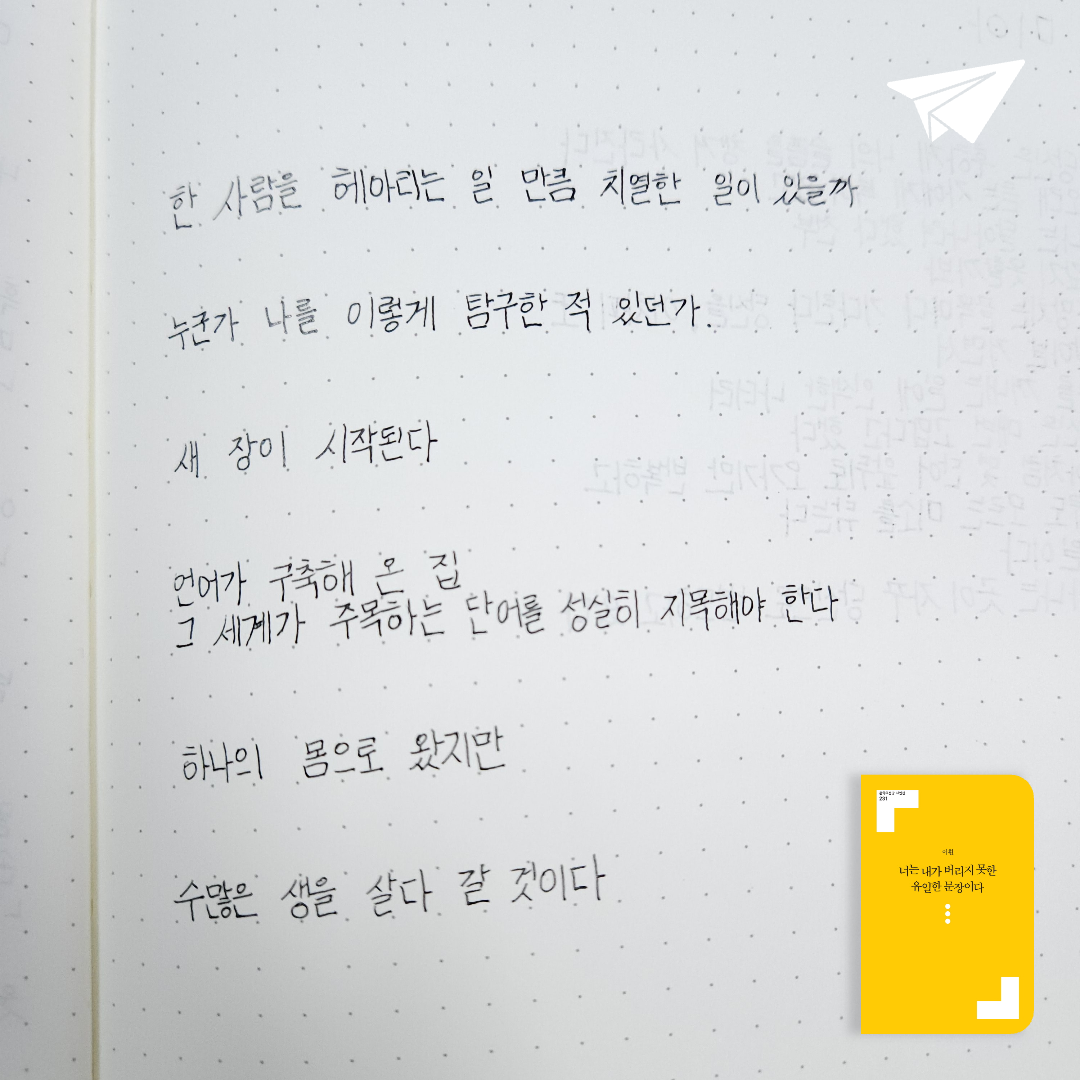 한 사람을 헤아리는 일 만큼 치열한 일이 있을까
누군가 나를 이렇게 탐구한 적 있던가.
새 장이 시작된다
언어가 구축해 온 집
그 세계가 주목하는 단어를 성실히 지목해야 한다
하나의 몸으로 왔지만
수많은 생을 살다 갈 것이다
231
너는 내가 버리지 못한
유일한 문장이다